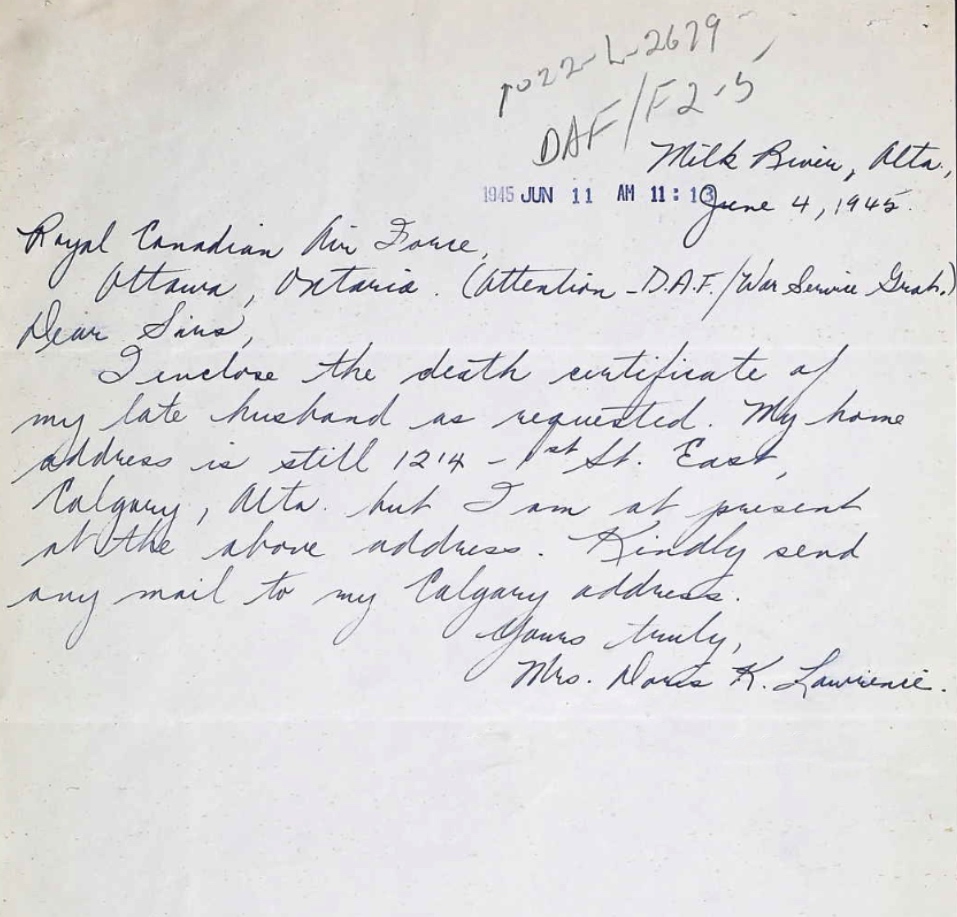 1022-L-2679
DAF/F2-5
Milk River, Alta.,
1945 JUN 11 AM 11:13
June 4, 1945.
Royal Canadian Air Force,
Ottawa, Ontario. (Attention - D.A.F./War Service Grat.)
Dear Sirs,
I enclose the death certificate of
my late husband as requested. My home
address is still 1214 - 1st St. East,
Calgary, Alta. but I am at present
at the above address. Kindly send
any mail to my Calgary address.
Yours truly,
Mrs. Doris K. Lawrence.